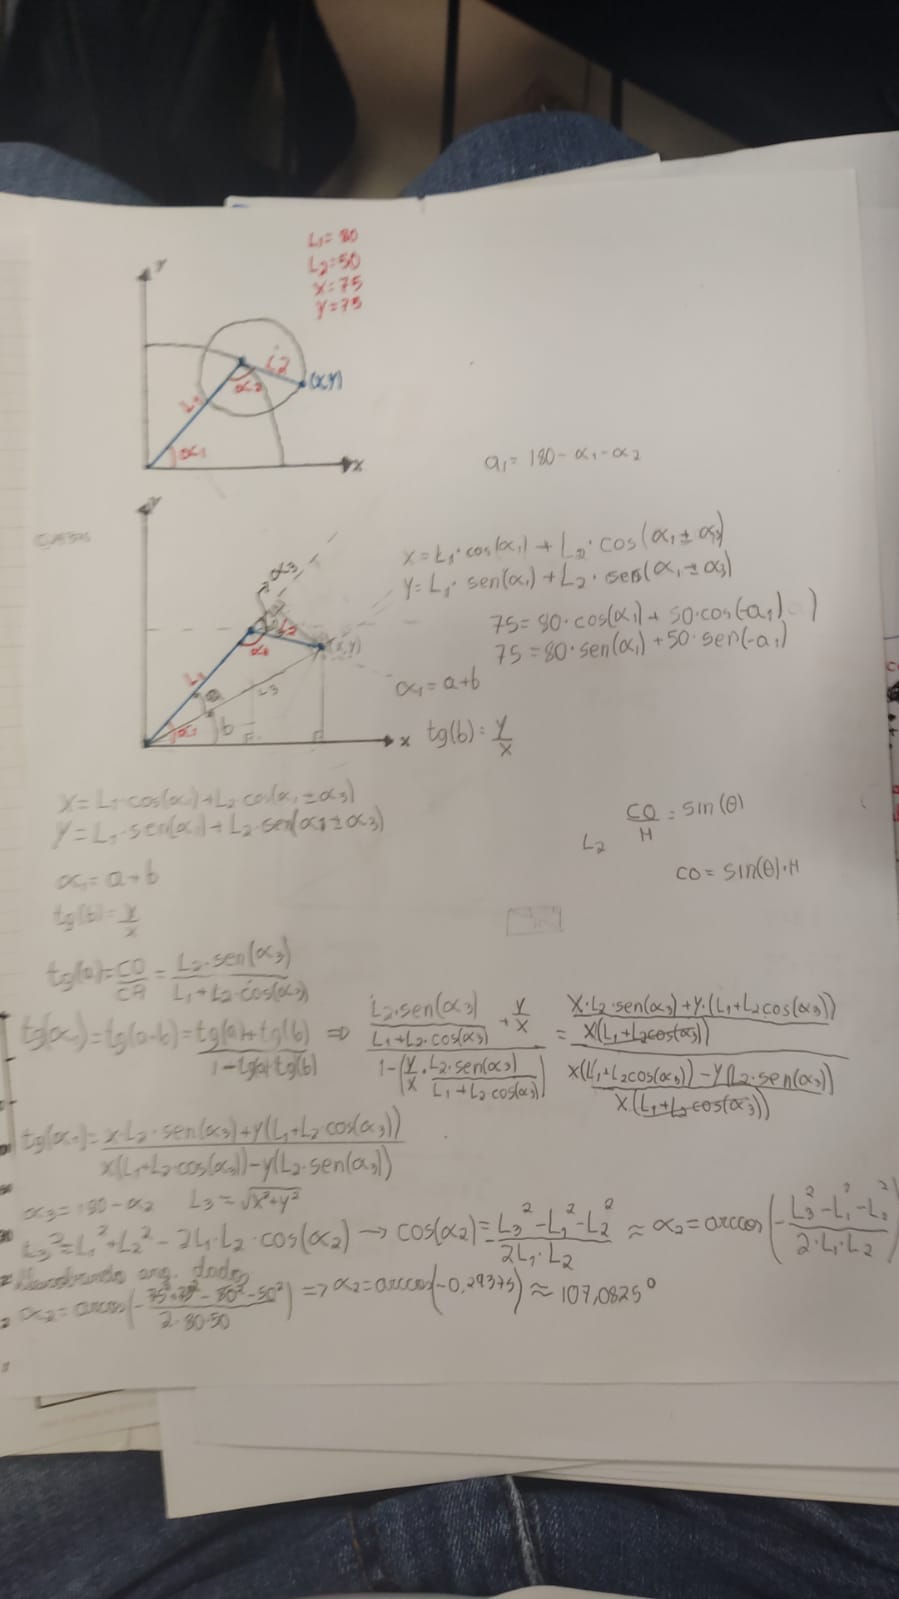 L₁= 80
L₂=50
x=75
y=75
y
L₂
α₂
(x,y)
L₁
α₁
x
a₁= 180-α₁-α₂
y
x=L₁·cos(α₁)+L₂·cos(α₁±α₃)
y=L₁·sen(α₁)+L₂·sen(α₁±α₃)
α₃
75=80·cos(α₁)+50·cos(-a₁)
75=80·sen(α₁)+50·sen(-a₁)
L₂
(x,y)
L₁
L₃
α₁
b
x
α₁=a+b
tg(b)=y/x
x=L₁·cos(α₁)+L₂·cos(α₁±α₃)
y=L₁·sen(α₁)+L₂·sen(α₁±α₃)
CO/H=sin(θ)
L₂
CO=sin(θ)·H
α₁=a+b
tg(b)=y/x
tg(a)=CO/CA=L₂·sen(α₃)/L₁+L₂·cos(α₃)
tg(α₁)=tg(a-b)=tg(a)+tg(b)/1-tg(a)+tg(b) ⇒ L₂·sen(α₃)/L₁+L₂·cos(α₃)+y/x/1-(y/x·L₂·sen(α₃)/L₁+L₂cos(α₃))=x·L₂·sen(α₃)+y·(L₁+L₂cos(α₃))/x(L₁+L₂cos(α₃))/x(L₁+L₂cos(α₃))-y(L₂·sen(α₃))/x(L₁+L₂cos(α₃))
tg(α₁)=x·L₂·sen(α₃)+y(L₁+L₂·cos(α₃))/x(L₁+L₂·cos(α₃))-y(L₂·sen(α₃))
α₃=180-α₂ L₃=√x²+y²
L₃²=L₁²+L₂²-2L₁·L₂·cos(α₂)→cos(α₂)=-L₃²-L₁²-L₂²/2L₁·L₂≈α₂=arccos(-L₃²-L₁²-L₂²/2·L₁·L₂)
ang. dados
α₂=arccos(-75²+75²-80²-50²/2·80·50)=>α₂=arccos(-0,29375)≈107,0825°